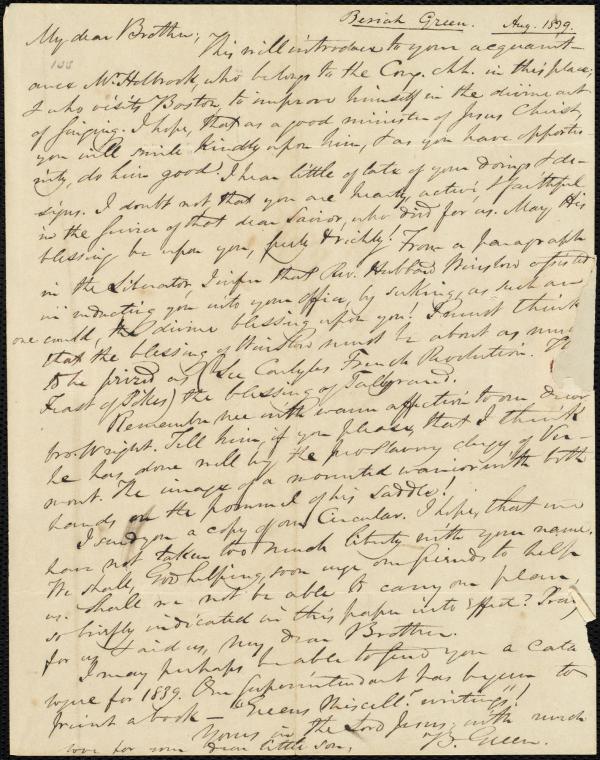 Beriah Green. Aug. 1839.
My dear Brother,
This will introduce to your acquaint-
ance Mr. Holbrook, who belongs to the Cong. Ch. in this place;
& who visits Boston, to improve himself in the divine art
of singing. I hope, that as a good minister of Jesus Christ,
you will smile kindly upon him, & as you have opportu-
nity, do him good. I hear little of late of your doings & de-
signs. I doubt not that you are hearty, active, & faithful
in the service of that dear Savior, who died for us. May His
blessing be upon you, freely & richly! From a paragraph
in the Liberator, I infer that Rev. Hubbard Winslow assisted
in inducting you into your office, by seeking, as such an
one could, the divine blessing upon you! I must think
that the blessing of Winslow must be about as much
to be prized as (See Carlyles French Revolution. The
Feast of Pikes) the blessing of Talleyrand.
Remember me with warm affection to our dear
bro. Wright. Tell him, if you please, that I think
he has done well by the pro slavery clergy of Ver-
mont. The image of a mounted warrior with both
hands on the pommel of his saddle!
I send you a copy of our Circular. I hope, that we
have not taken too much liberty with your name.
We shall, God helping, soon urge our friends to help
us. Shall we not be able to carry our plan,
so briefly indicated in this paper into effect? Pray
for us & aid us, my dear Brother.
I may perhaps be able to send you a cata
logue for 1839. Our Superintendant has begun to
print a book — "Greens Miscell.s writings"!
Yours in the Lord Jesus, with much
love for your dear little son, B. Green.